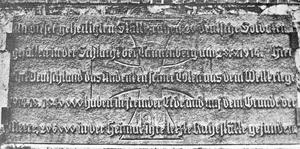 An dieser geheiligten Stätte ruhen 20 deutsche Soldaten
gefallen in der Schlacht bei Tannenberg am 28.8.1914. Hier
ehrt Deutschland das Andenken seiner Toten aus dem Weltkriege
1914-18. haben in fremder Erde und auf dem Grunde der
Meere, in der Heimat ihre letzte Ruhestätte gefunden.